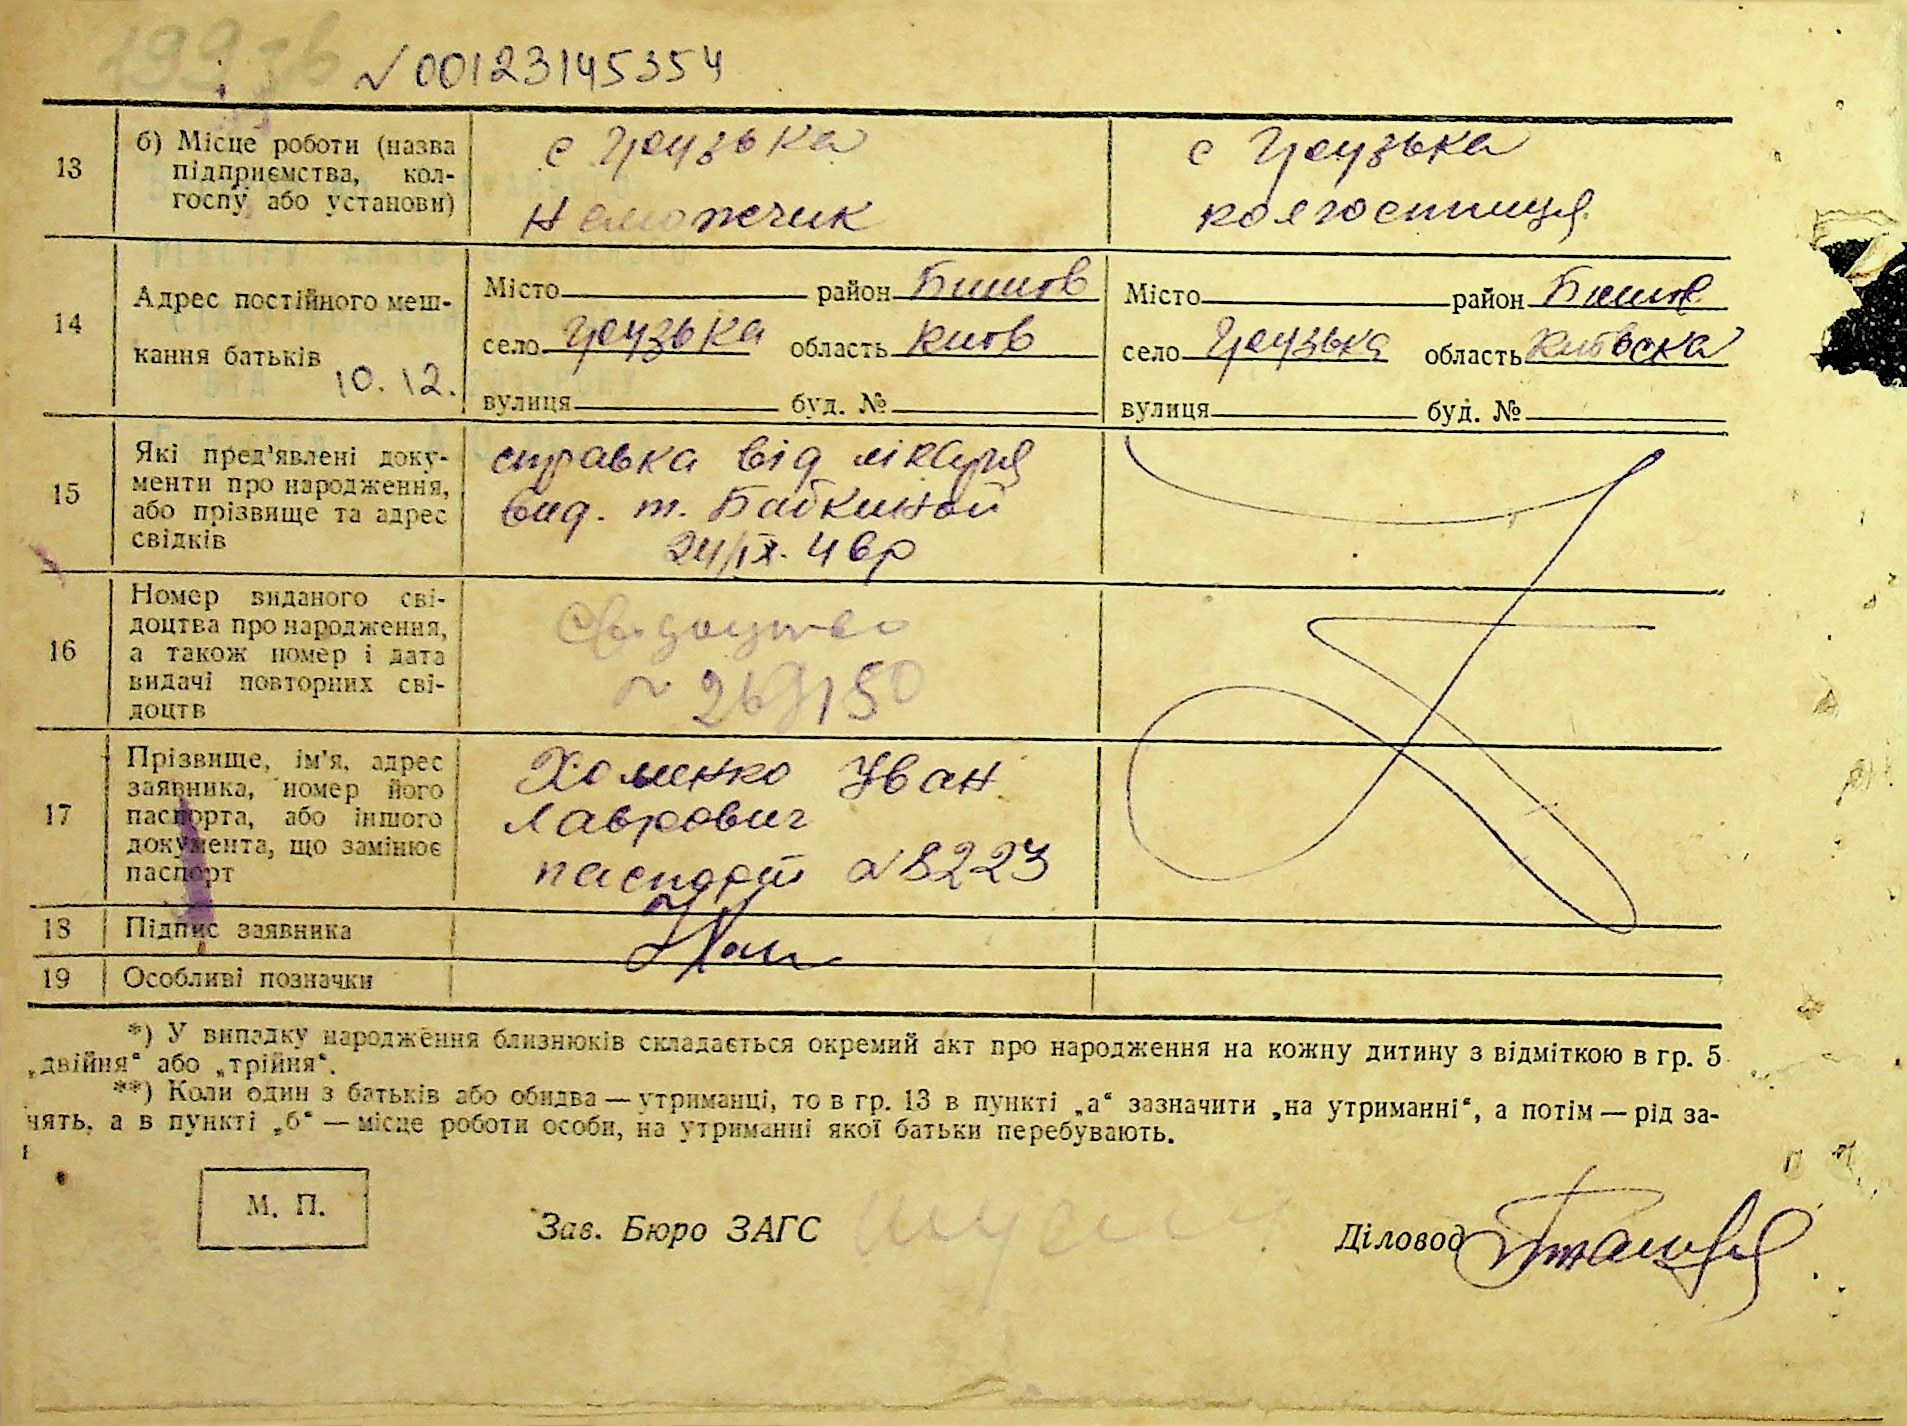 № 00123145354
13 б) Місце роботи (назва підприємства, колгоспу або установи)
с Грузька с Грузька
колгоспниця
14 Адрес постійного мешкання батьків 10.12.
Місто район Бишов Місто район Бишов
село Грузька область Київ село Грузька область Київська
вулиця буд. № вулиця буд. №
15 Які пред'явлені документи про народження, або прізвище та адрес свідків
справка від лікаря
вид. т. Бабкиной
24/IX. 4 вр
16 Номер виданого свідоцтва про народження, а також номер і дата видачі повторних свідоцтв
17 Прізвище, ім'я, адрес заявника, номер його паспорта, або іншого документа, що замінює паспорт
Хоменко Іван
Лаврович
паспорт № 8223
18 Підпис заявника
19 Особливі позначки
*) У випадку народження близнюків складається окремий акт про народження на кожну дитину з відміткою в гр. 5
„двійня“ або „трійня“.
**) Коли один з батьків або обидва — утриманці, то в гр. 13 в пункті „а“ зазначити „на утриманні“, а потім — рід за-
нять, а в пункті „б“ — місце роботи особи, на утриманні якої батьки перебувають.
М. П.
Зав. Бюро ЗАГС Діловод